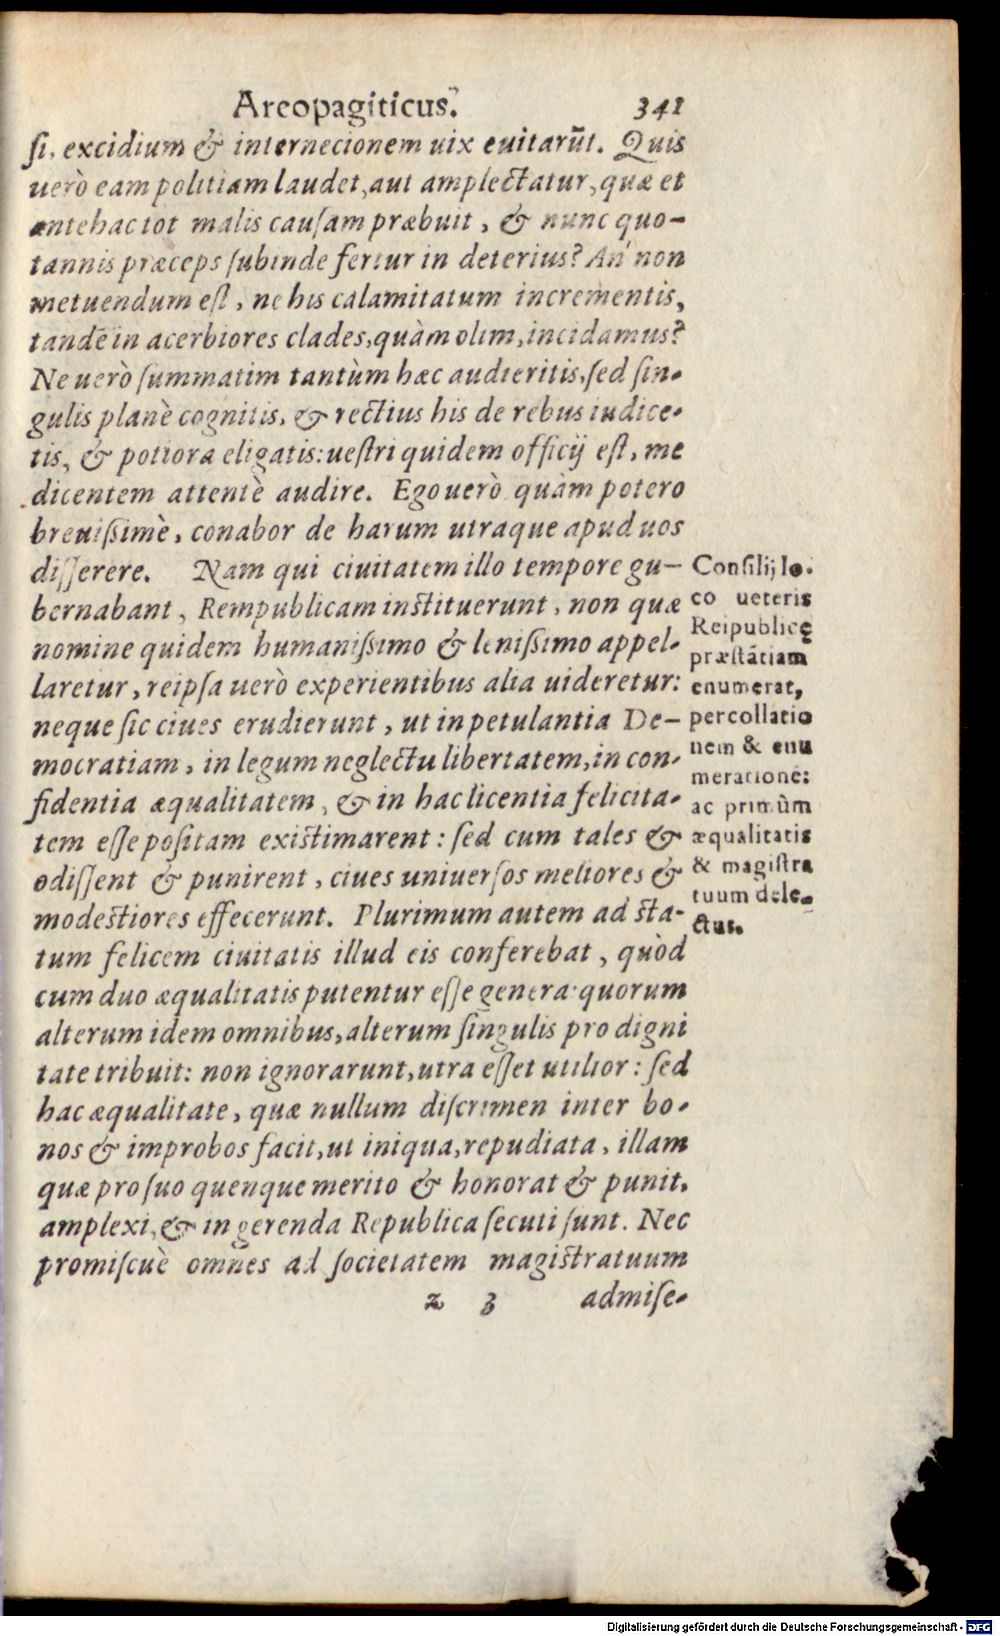 Areopagiticus. 341
ſi, excidium & internecionem uix euitarūt. Quis
uerò eam politiam laudet, aut amplectatur, quæ et
antehac tot malis cauſam præbuit, & nunc quo-
tannis præceps ſubinde fertur in deterius? An' non
metuendum eſt, ne his calamitatum incrementis,
tandē in acerbiores clades, quàm olim, incidamus?
Ne uerò ſummatim tantùm hæc audieritis, ſed ſin-
gulis planè cognitis, & rectius his de rebus iudice-
tis, & potiora eligatis: ueſtri quidem officij eſt, me
dicentem attentè audire. Ego uerò quàm potero
breuiſſimè, conabor de harum utraque apud uos
diſſerere. Nam qui ciuitatem illo tempore gu-
bernabant, Rempublicam inſtituerunt, non quæ
nomine quidem humaniſſimo & leniſſimo appel-
laretur, reipſa uerò experientibus alia uideretur:
neque ſic ciues erudierunt, ut in petulantia De-
mocratiam, in legum neglectu libertatem, in con-
fidentia æqualitatem, & in hac licentia felicita-
tem eſſe poſitam exiſtimarent: ſed cum tales &
odiſſent & punirent, ciues uniuerſos meliores &
modeſtiores effecerunt. Plurimum autem ad ſta-
tum felicem ciuitatis illud eis conferebat, quòd
cum duo æqualitatis putentur eſſe genera: quorum
alterum idem omnibus, alterum ſingulis pro digni
tate tribuit: non ignorarunt, utra eſſet utilior: ſed
hac æqualitate, quæ nullum diſcrimen inter bo-
nos & improbos facit, ut iniqua, repudiata, illam
quæ pro ſuo quenque merito & honorat & punit,
amplexi, & in gerenda Republica ſecuti ſunt. Nec
promiſcuè omnes ad ſocietatem magiſtratuum
z 3 admiſe-
Conſilij lo-
co ueteris
Reipublicę
præſtātiam
enumerat,
per collatio
nem & enu
merationē:
ac primùm
æqualitatis
& magiſtra
tuum dele-
ctus.
Digitalisierung gefördert durch die Deutsche Forschungsgemeinschaft - DFG